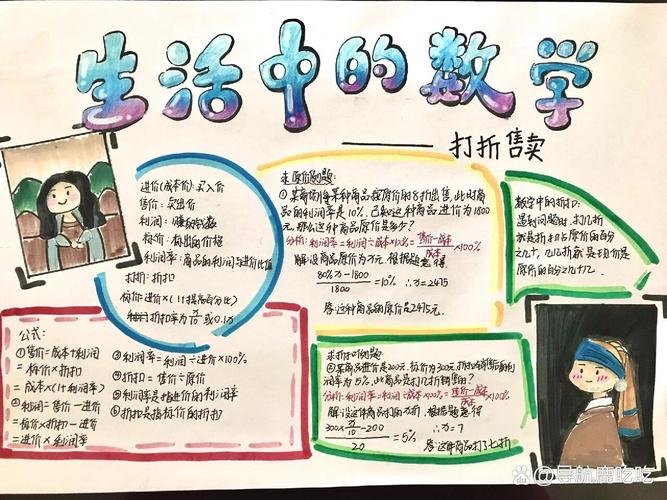 生活中的数学
——打折售卖
进价(成本价):买入价
售价:卖出价
利润:赚的钱数
标价:标出的价格
利润率:商品的利润与进价比值
打折:折扣
标价:进价×(1+提高百分比)
折扣率为x/10或0.1x
求原价例题:
①某商场将某种商品按原价的8折出售,此时商
品的利润率是10%.已知这种商品进价为1800
元,那么这种商品原价是多少?
分析:利润率=利润÷成本×100%=售价-成本/成本×100%
解:设商品原价为x元.根据题意得
80%x-1800/1800=10% ∴x=2475
答:这种商品的原价是2475元.
数学中的折扣:
遇到问题时,打几折
就是折扣占原价的百分
之几十,几几折就是现价是
原价的百分之几十几.
公式:
①售价=成本+利润
=标价×折扣
=成本×(1+利润率)
②利润=售价-进价
=标价×折扣-进价
=进价×利润率
③利润率=利润÷进价×100%
④折扣=售价÷原价
⑤利润率是指进价的利润率
⑥折扣是指标价的折扣
求折扣例题:
②某商品进价是200元,标价为300元,折扣后的利
润率为5%,此商品是打几折销售的?
分析:利润率=利润÷成本×100%=售价-成本/成本×100%
解:设这件商品打的x折,根据题意得
300×x/10-200/20=5% ∴x=7
答:这种商品打了七折
@导航鹿吃吃